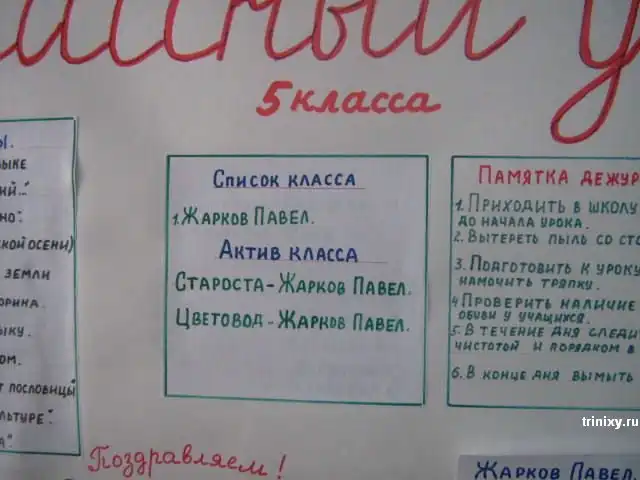 5 класса
Список класса
1. Жарков Павел.
Актив класса
Староста - Жарков Павел.
Цветовод - Жарков Павел.
Памятка дежур
1. Приходить в школу
до начала урока.
2. Вытереть пыль со сто
3. Подготовить к уроку
намочить тряпку.
4 Проверить наличие
обуви у учащихся.
5. В течение дня следи
чистотой и порядком в
6. В конце дня вымыть
ы.
ыке
ий..."
но".
ской осени)
земли
орина.
ыку.
ом.
т пословицы
льтуре".
а".
Поздравляем!
Жарков Павел.
trinixy.ru